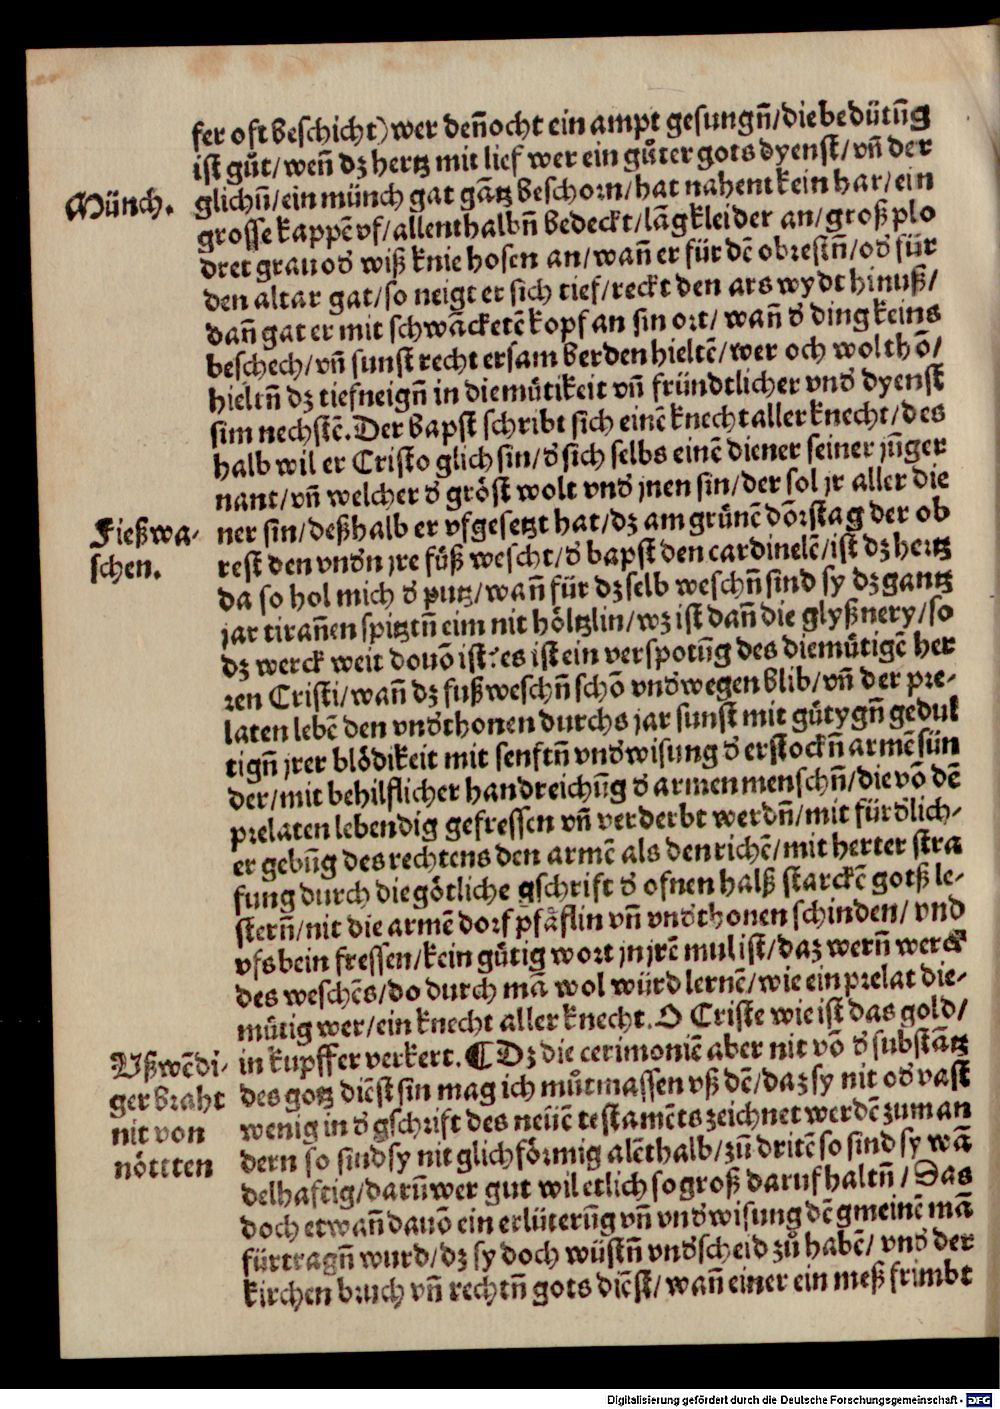 fer oft beschicht) wer deñocht ein ampt gesungñ/die bedütũg
ist gůt/weñ dz hertz mit lief wer ein gůter gots dyenst/vñ der
Münch.
glichñ/ein münch gat gãtz beschorn/hat nahent kein har/ein
grosse kappẽ vf/allenthalbñ bedeckt/lãg kleider an/groß plo
dret grau od' wiß kniehosen an/wañ er für dẽ obrestñ/od' für
den altar gat/so neigt er sich tief/reckt den ars wydt hinuß/
dañ gat er mit schwãcketẽ kopf an sin ort/wañ d' ding keins
beschech/vñ sunst recht ersam berden hieltẽ/wer och wolthõ/
hieltñ dz tiefneigñ in diemůtikeit vñ fründtlicher vnd' dyenst
sim nechstẽ. Der bapst schribt sich einẽ knecht aller knecht/des
halb wil er Cristo glich sin/d' sich selbs einẽ diener seiner jũger
nant/vñ welcher d' gröst wolt vnd' jnen sin/der sol jr aller die
Fießwa-
schen.
ner sin/deßhalb er vfgesetzt hat/dz am grünẽ dõrstag der ob
rest den vnd'n jre fůß wescht/d' bapst den cardinelẽ/ist dz hertz
da so hol mich d' putz/wañ für dz selb weschñ sind sy dz gantz
jar tirañen spitztñ eim nit höltzlin/wz ist dañ die glyßnery/so
dz werck weit douõ ist? es ist ein verspotũg des diemůtigẽ her
ren Cristi/wañ dz fußweschñ schõ vnd'wegen blib/vñ der pre-
laten lebẽ den vnd'thonen durchs jar sunst mit gůtygñ gedul
tigñ jrer blödikeit mit senftñ vnd'wisung d' erstocktñ armẽ sün
der/mit behilflicher handreichũg d' armen menschñ/die võ dẽ
prelaten lebendig gefressen vñ verderbt werdñ/mit fürd'lich-
er gebũg des rechtens den armẽ als den richẽ/mit herter stra
fung durch die götliche gschrift d' ofnen halß starckẽ gotß le-
sterñ/nit die armẽ dorf pfäflin vñ vnd'thonen schinden/vnd
vfs bein fressen/kein gůtig wort jn jrẽ mul ist/daz werñ werck
des weschẽs/do durch mã wol würd lernẽ/wie ein prelat die-
můtig wer/ein knecht aller knecht. O Criste wie ist das gold/
Vßwẽdi-
ger braht
nit von
nöttten
in kupffer verkert. ¶ Dz die cerimoniẽ aber nit võ d' substãtz
des gotz diẽst sin mag ich můtmassen vß dẽ/daz sy nit od' vast
wenig in d' gschrift des neüẽ testamẽts zeichnet werdẽ zum an
dern so sind sy nit glichförmig alẽthalb/zũ dritẽ so sind sy wã
delhaftig/darũ wer gut wil etlich so groß daruf haltñ/Das
doch etwañ dauõ ein erlüterũg vñ vnd'wisung dẽ gmeinẽ mã
fürtragñ wurd/dz sy doch wüstñ vnd'scheid zů habẽ/vnd' der
kirchen bruch vñ rechtñ gots diẽst/wañ einer ein meß frimbt
Digitalisierung gefördert durch die Deutsche Forschungsgemeinschaft - DFG